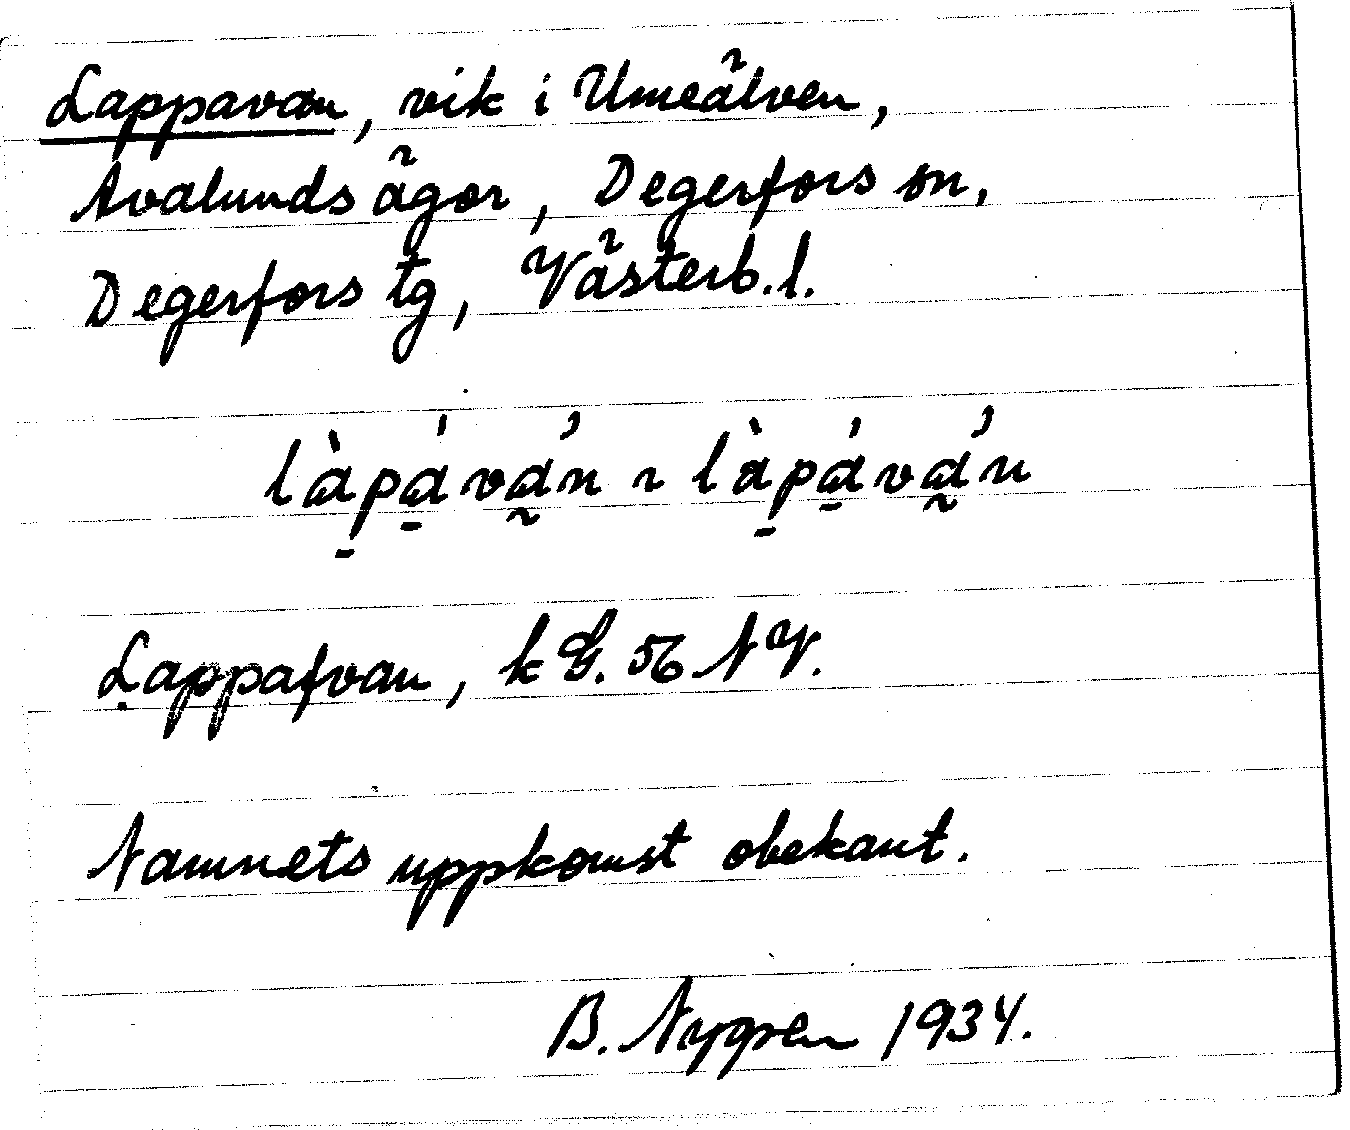 Lappavan, vik i Umeälven,
Avalunds ägor, Degerfors sn,
Degerfors tg, Västerb. l.
làpá̠vá̰n ~ làpá̠vá̰n
Lappafvan, k G. 56 NV.
Namnets uppkomst obekant.
B. Nygren 1934.